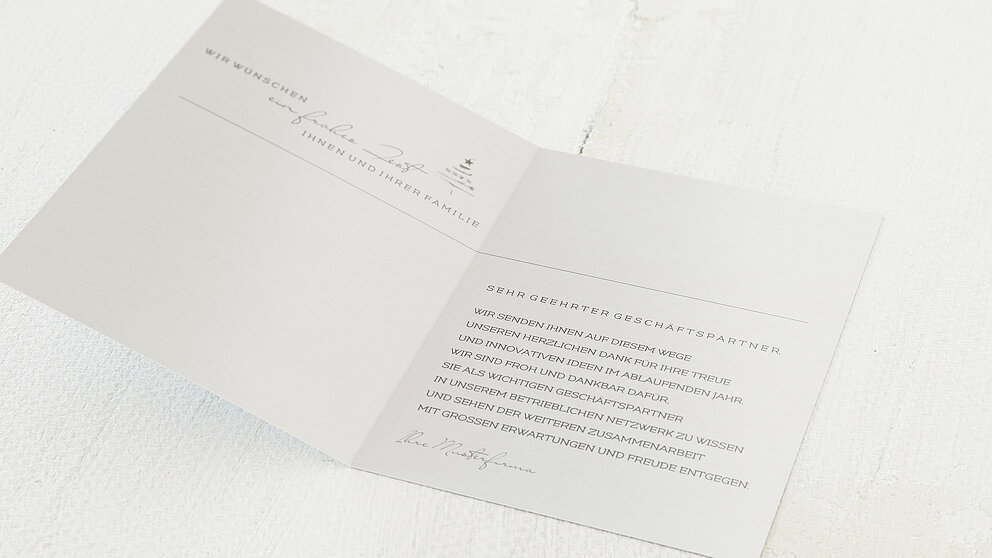 WIR WÜNSCHEN
ein frohes Fest
IHNEN UND IHRER FAMILIE
SEHR GEEHRTER GESCHÄFTSPARTNER,
WIR SENDEN IHNEN AUF DIESEM WEGE
UNSEREN HERZLICHEN DANK FÜR IHRE TREUE
UND INNOVATIVEN IDEEN IM ABLAUFENDEN JAHR.
WIR SIND FROH UND DANKBAR DAFÜR,
SIE ALS WICHTIGEN GESCHÄFTSPARTNER
IN UNSEREM BETRIEBLICHEN NETZWERK ZU WISSEN
UND SEHEN DER WEITEREN ZUSAMMENARBEIT
MIT GROSSEN ERWARTUNGEN UND FREUDE ENTGEGEN.
Ihre Musterfirma